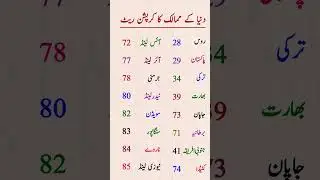 دنیا کے ممالک کا کرپشن ریٹ
روس 28 آئس لینڈ 72
پاکستان 29 آئر لینڈ 77
ترکی 34 جرمنی 78
بھارت 39 نیدرلینڈ 80
جاپان 73 سویڈن 82
برطانیہ 71 سنگاپور 83
جنوبی افریقہ 41 ناروے 84
کینیڈا 74 نیوزی لینڈ 85
ترکی 78
بھارت 80
جاپان 82